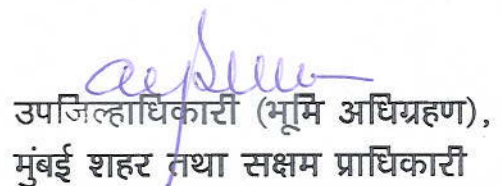 उपजिल्हाधिकारी (भूमि अधिग्रहण),
मुंबई शहर तथा सक्षम प्राधिकारी